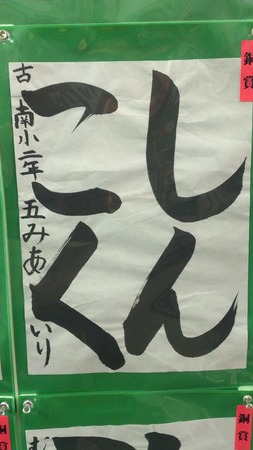 銅賞
しん
こく
古南小二年 五みあいり
銅賞